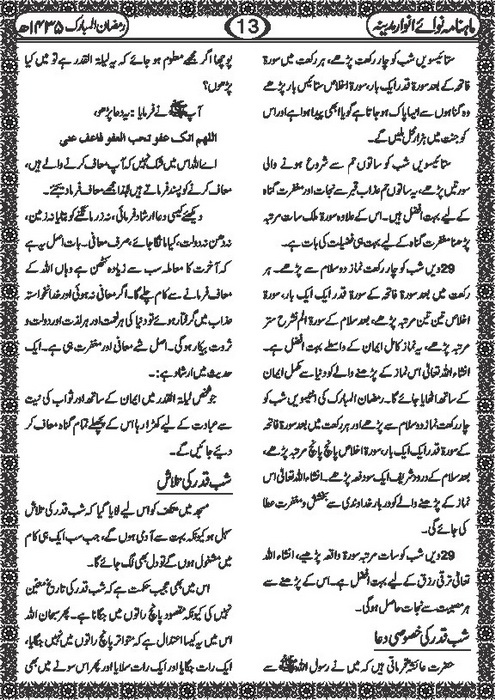 ماہنامہ نوائے انوار مدینہ
13
رمضان المبارک ۱۴۳۵ھ
ستائیسویں شب کو چار رکعت پڑھے، ہر رکعت میں سورۃ
فاتحہ کے بعد سورۃ قدر ایک بار، سورۃ اخلاص ستائیس بار پڑھے
وہ گناہوں سے ایسا پاک ہو جاتا ہے گویا ابھی پیدا ہوا ہے اور اس
کو جنت میں ہزار محل ملیں گے۔
ستائیسویں شب کو ساتوں حم سے شروع ہونے والی
سورتیں پڑھے، یہ ساتوں حم عذاب قبر سے نجات اور مغفرت گناہ
کے لیے بہت افضل ہیں۔ اس کے علاوہ سورۃ ملک سات مرتبہ
پڑھنا مغفرت گناہ کے لیے بہت ہی فضیلت کی بات ہے۔
29ویں شب کو چار رکعت نماز دو سلام سے پڑھے۔ ہر
رکعت میں بعد سورۃ فاتحہ کے سورۃ قدر ایک ایک بار، سورۃ
اخلاص تین تین مرتبہ پڑھے، بعد سلام کے سورۃ الم نشرح ستر
مرتبہ پڑھے، یہ نماز کامل ایمان کے واسطے بہت افضل ہے۔
انشاء اللہ تعالیٰ اس نماز کے پڑھنے والے کو دنیا سے مکمل ایمان
کے ساتھ اٹھایا جائے گا۔ رمضان المبارک کی انتیسویں شب کو
چار رکعت نماز دو سلام سے پڑھے اور ہر رکعت میں بعد سورۃ فاتحہ
کے سورۃ قدر ایک ایک بار، سورۃ اخلاص پانچ پانچ مرتبہ پڑھے،
بعد سلام کے درود شریف ایک سو دفعہ پڑھے۔ انشاء اللہ تعالیٰ اس
نماز کے پڑھنے والے کو دربار خداوندی سے بخشش و مغفرت عطا
کی جائے گی۔
29ویں شب کو سات مرتبہ سورۃ واقعہ پڑھیے، انشاء اللہ
تعالیٰ ترقی رزق کے لیے بہت افضل ہے۔ اس کے پڑھنے سے
ہر مصیبت سے نجات حاصل ہوگی۔
شب قدر کی خصوصی دعا
حضرت عائشہؓ فرماتی ہیں کہ میں نے رسول اللہ ﷺ سے
پوچھا اگر مجھے معلوم ہو جائے کہ یہ لیلۃ القدر ہے تو میں کیا
پڑھوں؟
آپ ﷺ نے فرمایا: یہ دعا پڑھو،
اللهم انک عفو تحب العفو فاعف عنی
اے اللہ اس میں شک نہیں کہ آپ معاف کرنے والے ہیں،
معاف کرنے کو پسند فرماتے ہیں لہٰذا مجھے معاف فرما دیجئے۔
دیکھئے کیسی دعا ارشاد فرمائی، نہ زر مانگنے کو بتایا نہ زمین،
نہ دھن نہ دولت، کیا مانگا جائے، صرف معافی۔ بات اصل یہ ہے
کہ آخرت کا معاملہ سب سے زیادہ کٹھن ہے وہاں اللہ کے
معاف فرمانے سے کام چلے گا۔ اگر معافی نہ ہوئی اور خدانخواستہ
عذاب میں گرفتار ہوئے تو دنیا کی ہر نعمت اور ہر لذت اور دولت و
ثروت بیکار ہوگی۔ اصل شے معافی اور مغفرت ہی ہے۔ ایک
حدیث میں ارشاد ہے:۔
جو شخص لیلۃ القدر میں ایمان کے ساتھ اور ثواب کی نیت
سے عبادت کے لیے کھڑا رہا اس کے پچھلے تمام گناہ معاف کر
دیئے جائیں گے۔
شب قدر کی تلاش
مسجد میں معتکف کو اس لیے لایا گیا کہ شب قدر کی تلاش
سہل ہو کیونکہ بہت سے آدمی ہوں گے، جب سب ایک ہی کام
میں مشغول ہوں گے تو دل بھی لگ جائے گا۔
اس میں بھی عجیب حکمت ہے کہ شب قدر کی تاریخ متعین
نہیں کی کیونکہ مقصود پانچ راتوں میں جگانا ہے۔ پھر سبحان اللہ
اس میں یہ کیسا اعتدال ہے کہ متواتر پانچ راتوں میں نہیں جگایا،
ایک رات جگایا اور ایک رات سلایا اور پھر اس سونے میں بھی